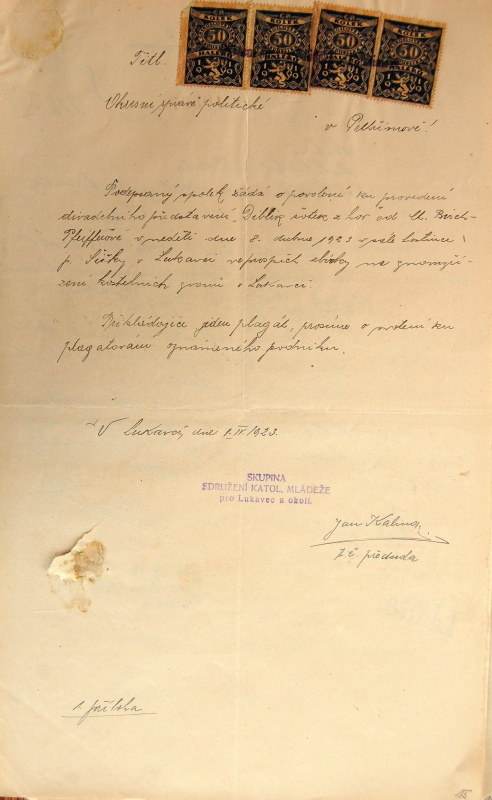 KOLEK KOLEK KOLEK KOLEK
50 50 50 50
HALÉŘŮ HALÉŘŮ HALÉŘŮ HALÉŘŮ
Titl.
Okresní správě politické
v Pelhřimově!
Podepsaný spolek žádá o povolení ku provedení
divadelního představení „Deblík, čótek z hor od Ch. Birch-
Pfeifferové v neděli dne 8. dubna 1923 v sále hostince
p. Sičky v Lukavci ve prospěch sbírky na
kostelních zvonů v Lukavci.
Přikládajíce jeden plagát, prosíme o svolení ku
plagatování označeného podniku.
V Lukavci dne 1.IV 1923.
SKUPINA
SDRUŽENÍ KATOL. MLÁDEŽE
pro Lukavec a okolí.
Jan Kalina
t. č. předseda
1 příloha